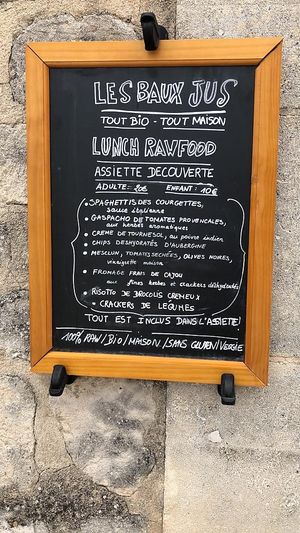 LES BAUX JUS
TOUT BIO - TOUT MAISON
LUNCH RAWFOOD
ASSIETTE DECOUVERTE
ADULTE: 20€ ENFANT: 10€
• SPAGHETTIS DES COURGETTES,
sauce italienne
GASPACHO DE TOMATES PROVENCALES,
aux herbes aromatiques
• CREME DE TOURNESOL, au poivre indien
• CHIPS DESHYDRATÉS D'AUBERGINE
• MESCLUN, TOMATES SECHÉES, OLIVES NOIRES,
vinaigrette maison
• FROMAGE FRAIS DE CAJOU
aux fines herbes et crackers déhydratés
• RISOTTO DE BROCOLIS CREMEUX
• CRACKERS DE LEGUMES
TOUT EST INCLUS DANS L'ASSIETTE!
100% RAW/BIO/MAISON/SANS GLUTEN/VEGGIE